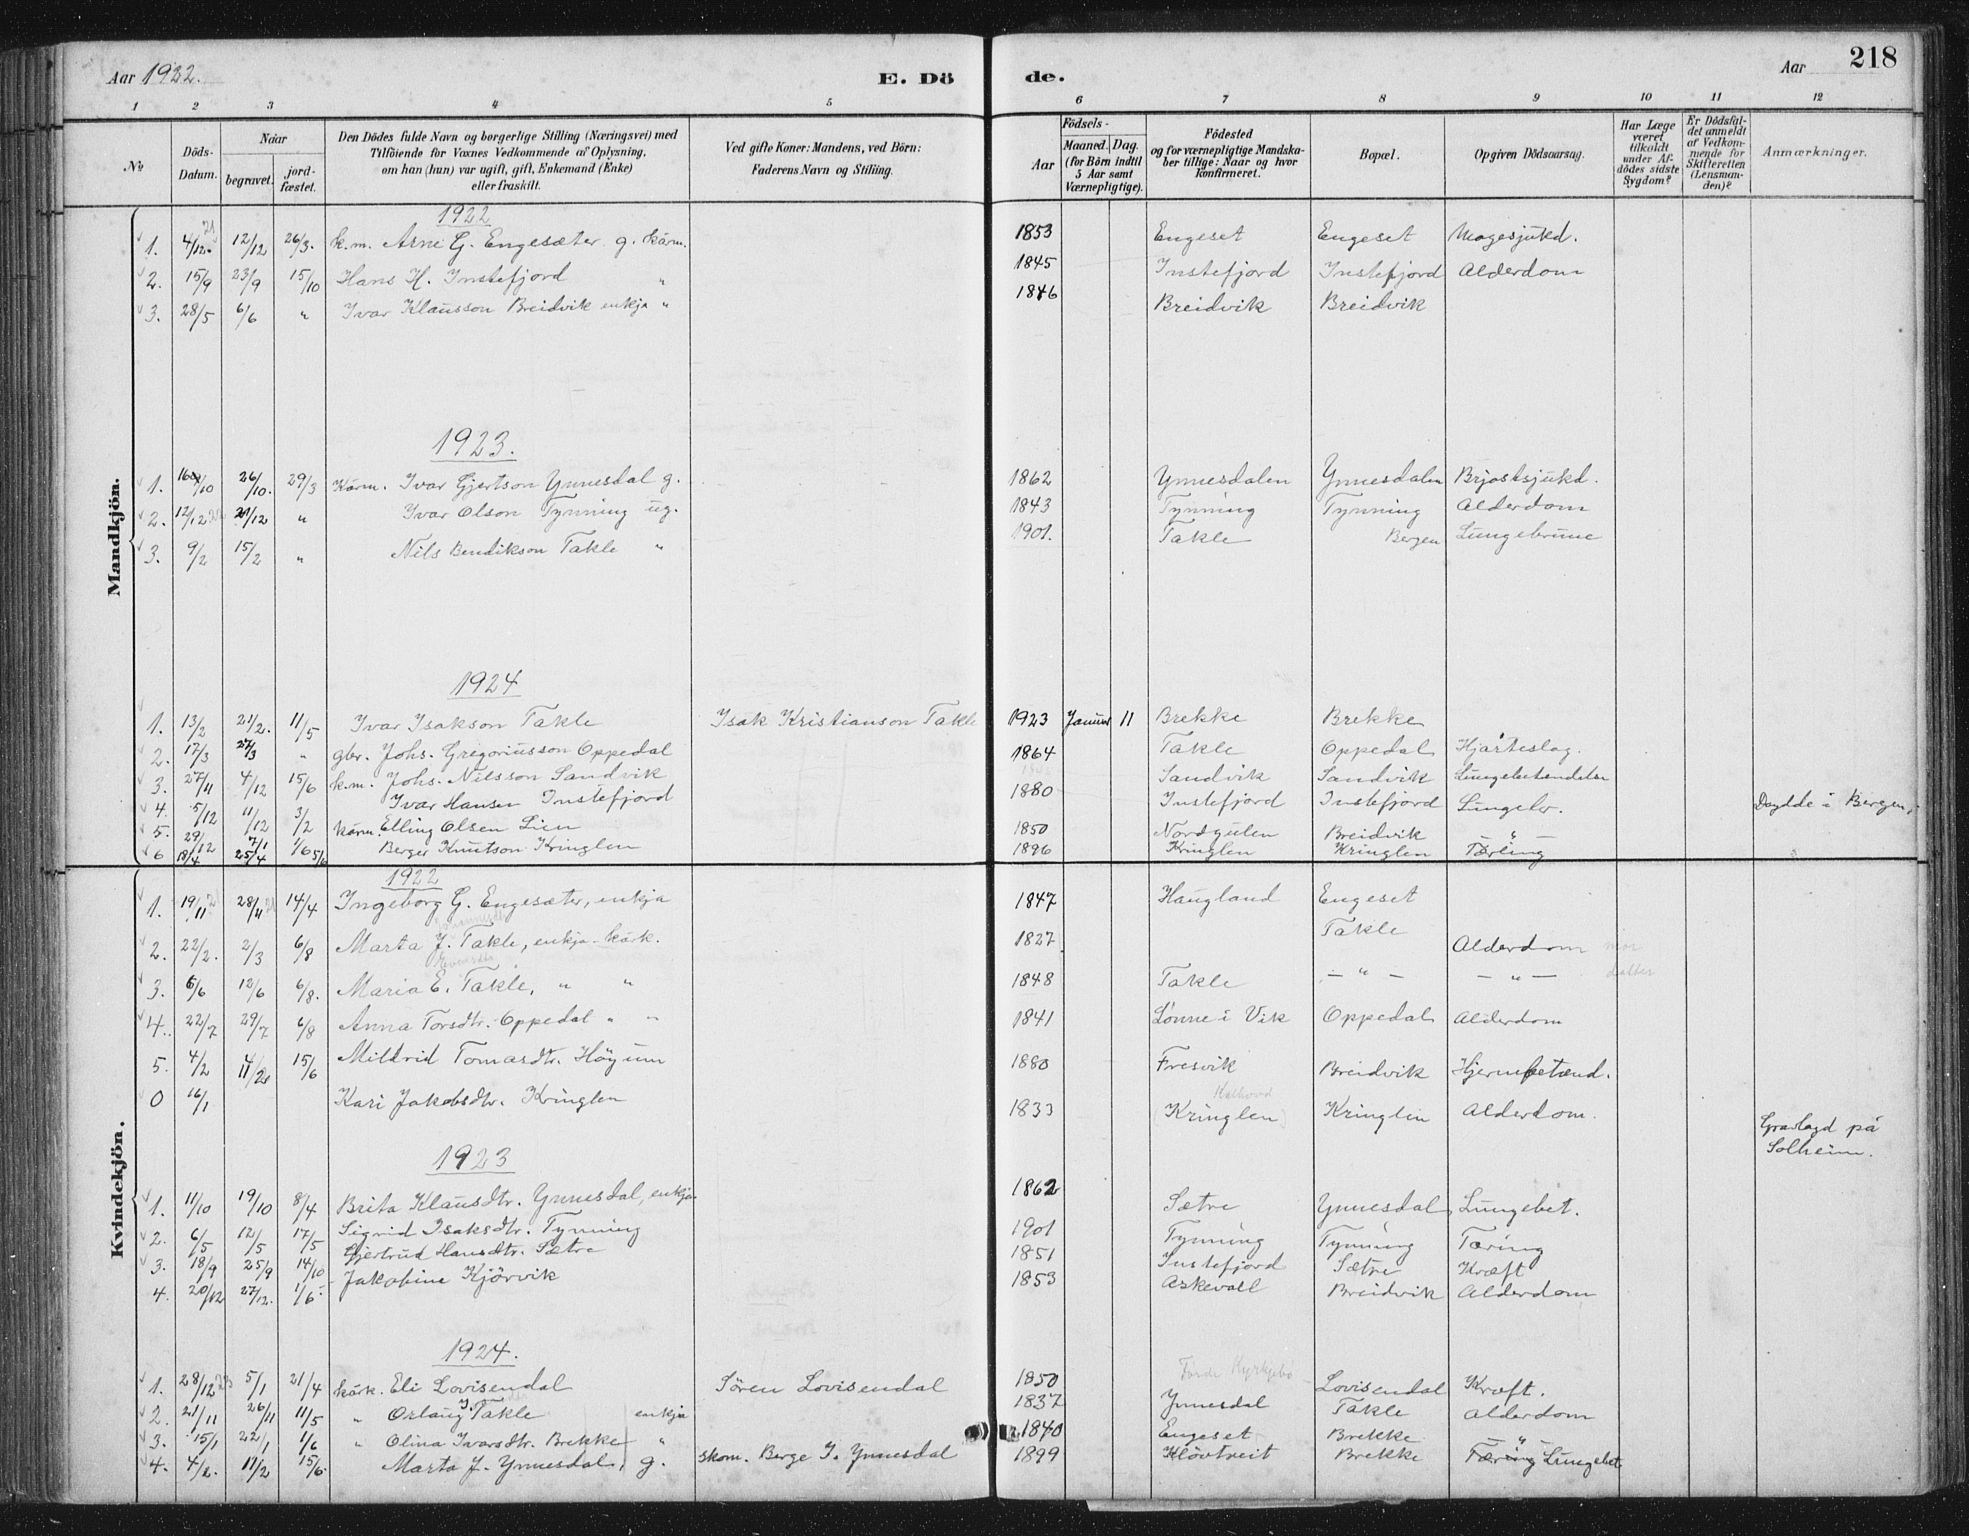 Aar 1922.
E. Dö
de.
Aar
218
1 2 3 4 5 6 7 8 9 10 11 12
№
Döds-Datum.
Naar
begravet.
jordfæstet.
Den Dödes fulde Navn og borgerlige Stilling (Næringsvei) med
Tilföiende for Voxnes Vedkommende af Oplysning,
om han (hun) var ugift, gift, Enkemand (Enke)
eller fraskilt.
Ved gifte Koner: Mandens, ved Börn:
Faderens Navn og Stilling.
Födsels-
Aar
Maaned. Dag.
(for Börn indtil
5 Aar samt
Værnepligtige).
Födested
og for værnepligtige Mandskaber tillige: Naar og hvor
konfirmeret.
Bopæl.
Opgiven Dödsaarsag.
Har Læge
været
tilkaldt
under Afdödes sidste
Sygdom?
Er Dödsfaldet anmeldt
af Vedkommende for
Skifteretten
(Lensmanden)?
Anmærkninger.
Mandkjön.
1922
1. 4/12 21 12/12 26/3. k.m. Arne G. Engesæter g. kårm. 1853 Engeset Engeset Magesjukd.
2. 15/9 23/9 15/10 Hans H. Instefjord " 1845 Instefjord Instefjord Alderdom
3. 28/5 6/6 " Ivar Klausson Breidvik enkja " 1846 Breidvik Breidvik
1923.
1. 16/10 26/10. 29/3 Kårm. Ivar Gjertson Ynnesdal g. 1862 Ynnesdalen Ynnesdalen Brjostsjukd.
2. 12/12 21/12 " Ivar Olson Tynning ug. 1843 Tynning Tynning Alderdom
3. 9/2 15/2 " Nils Bendikson Takle " 1901. Takle Bergen Lungebrune
1924
1. 13/2 21/2. 11/5 Ivar Isakson Takle Isak Kristianson Takle 1923 Januar 11 Brekke Brekke
2. 17/3 27/3 " gbr. Johs. Gregoriusson Oppedal 1864 Takle Oppedal Hjarteslag.
3. 27/11 4/12 15/6 k.m. Johs. Nilsson Sandvik Sandvik Sandvik Lungebetendelse
4. 5/12 11/12 3/2 Ivar Hansen Instefjord 1880 Instefjord Instefjord Lungebr. Döydde i Bergen.
5. 29/12 7/1 1/6 kårm. Elling Olsen Lien 1850 Nordgulen Breidvik — " —
6 18/4 25/4 5/6 Berger Knutson Kringlen 1896 Kringlen Kringlen Tæring
Kvindekjön.
1922
1. 19/11 28/11 14/4 Ingeborg G. Engesæter, enkja 1847 Haugland Engeset
2. 22/2. 2/3 6/8 Marta J. Takle, enkja - kårk. 1827 Takle Alderdom mor
3. 6/6 12/6 6/8. Maria E. Takle, " " 1848 Takle — " — — " — datter
4. 22/7 29/7 6/8 Anna Torsdtr. Oppedal " " 1841 Lønne i Vik Oppedal Alderdom
5. 4/2 11/2 15/6 Mildrid Tomasdtr. Höyum 1880 Fresvik Breidvik Hjernebetænd.
0 16/1 Kari Jakobsdtr. Kringlen 1833 (Kringlen) Kringlen Alderdom. Gravlagd på
Solheim.
1923
1. 11/10 19/10 8/4 Brita Klausdtr. Ynnesdal, enkja 1862 Sætre Ynnesdal Lungebet.
2. 6/5 12/5 17/5 Sigrid Isaksdtr. Tynning 1901 Tynning Tynning Tæring
3. 18/9 25/9 14/10 Gjertrud Hansdtr. Sætre 1851 Instefjord Sætre Kræft
4. 20/12 27/12. 1/6 Jakobine Kjörvik 1853 Askevoll Breidvik Alderdom
1924.
1. 28/12 23 5/1 21/4 kårk. Eli Lovisendal Sören Lovisendal 1850 Lovisendal Kræft.
2. 21/11 26/11 11/5 " Orlaug J. Takle enkja 1837 Ynnesdal Takle Alderdom
3. 15/1 22/1 1/6 " Olina Ivarsdtr. Brekke " 1840 Engeset Brekke "
4. 4/2. 11/2 15/6. Marta J. Ynnesdal, g. skom. Berge I. Ynnesdal 1899 Klövtveit Brekke Tæring Lungebet